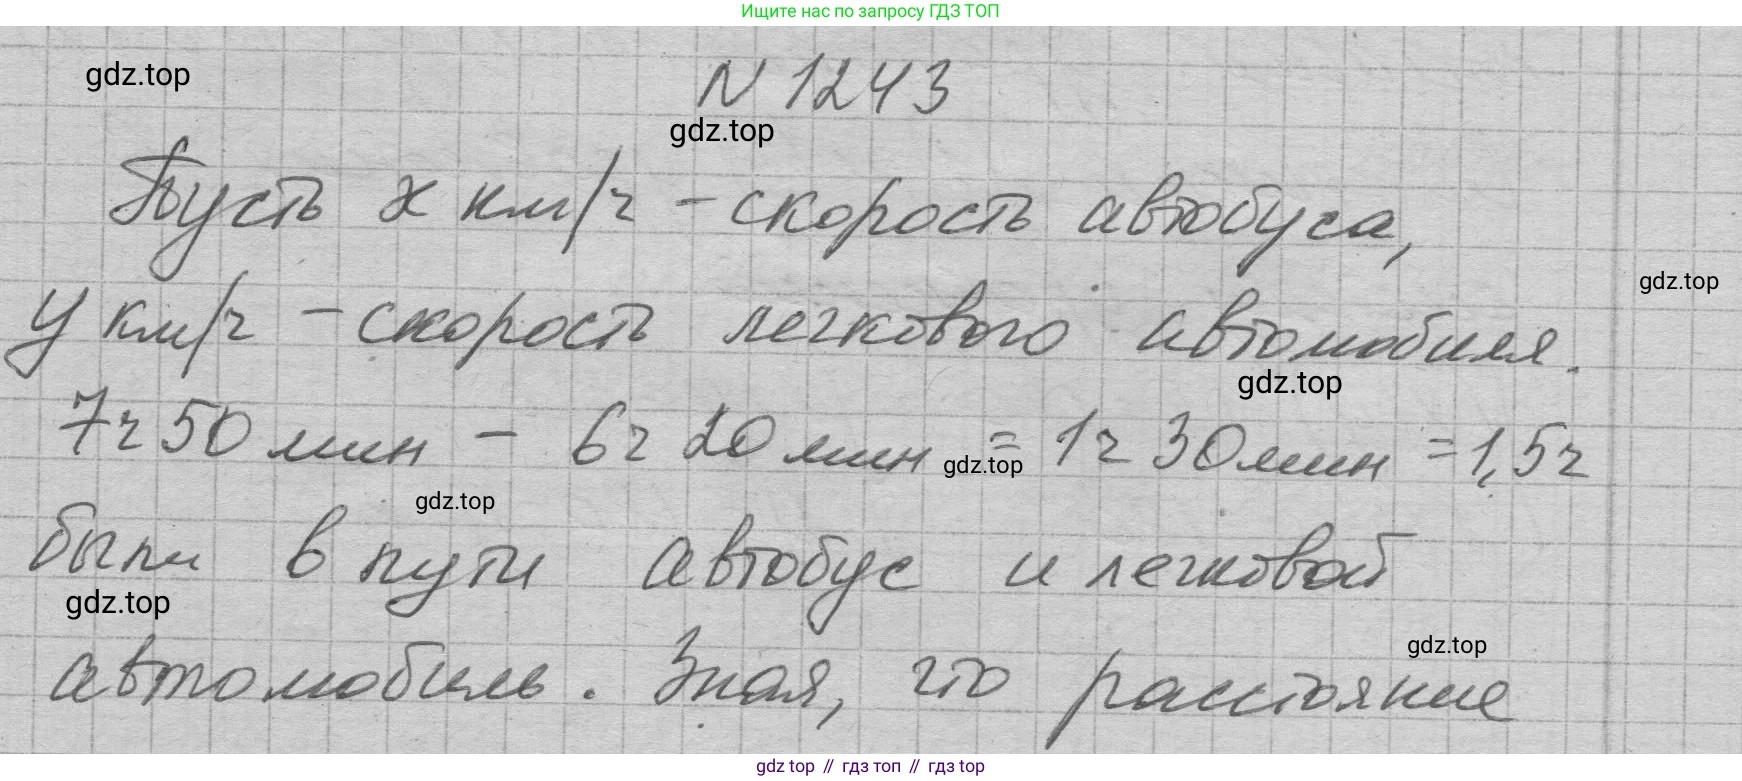 Ищите нас по запросу ГДЗ ТОП
gdz.top
N 1243
gdz.top
Пусть x км/ч - скорость автобуса,
gdz.top
y км/ч - скорость легкового автомобиля.
gdz.top
7ч 50 мин - 6ч 20 мин = 1ч 30 мин = 1,5ч
gdz.top
gdz.top
были в пути автобус и легковой
gdz.top
gdz.top
автомобиль. Зная, что расстояние
gdz top // гдз топ // gdz top